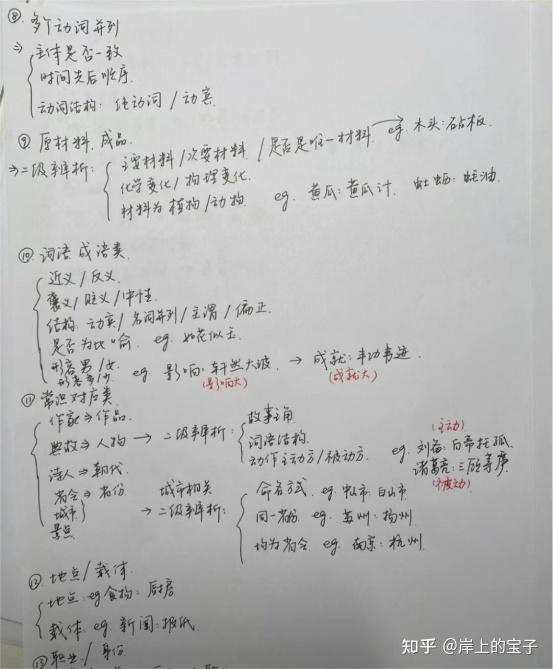 ⑧. 多个动词并列
⇒ 主体是否一致
时间先后顺序
动词结构: 纯动词 / 动宾
⑨ 原材料, 成品
⇒二级辨析: 主要材料/次要材料 / 是否是唯一材料 → eg. 木头:砧板
化学变化 / 物理变化
材料为植物/动物 eg. 黄瓜:黄瓜汁 牡蛎:蚝油
⑩ 词语 成语类
近义 / 反义
褒义 / 贬义 / 中性
结构: 动宾 / 名词并列 / 主谓 / 偏正
是否为比喻 eg. 如花似玉
形容男/女
形容多/少 eg. 影响:轩然大波 → 成就:丰功伟迹
(影响大) (成就大)
⑪ 常识对应类
作家⇒作品
典故⇒人物 → 二级辨析: 故事主角
词语结构
动作主动方/被动方 eg. 刘备:白帝托孤 (主动)
诸葛亮:三顾茅庐 (被动)
诗人⇒朝代
省会⇒省份
城市
景点
城市相关
→ 二级辨析: 命名方式. eg. 中山市:白山市
同一省份 eg. 苏州:扬州
均为省会 eg. 南京:杭州
⑫ 地点/载体
地点: eg食物:厨房
载体. eg. 新闻:报纸
⑬职业/身份
知乎 @岸上的宝子